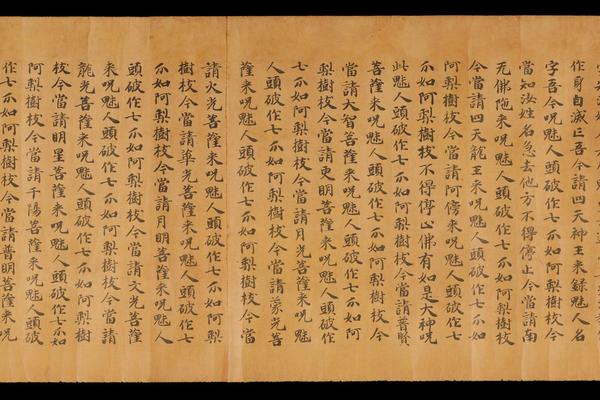 作身自滅正吾今請四天神王来録魅人名
字吾今呪魅人頭破作七分如阿梨樹枝今
當知汝姓名急去他方不得停止今當請南
无佛陁来呪魅人頭破作七分如阿梨樹枝
今當請四天龍王来呪魅人頭破作七分如
阿梨樹枝今當請阿傍来呪魅人頭破作七
分如阿梨樹枝不得停止佛有如是大神呪
此魅人頭破作七分如阿梨樹枝今當請普賢
菩薩来呪魅人頭破作七分如阿梨樹枝今
當請大智菩薩来呪魅人頭破作七分如阿
梨樹枝今當請更明菩薩来呪魅人頭破作
七分如阿梨樹枝今當請月光菩薩来呪魅
人頭破作七分如阿梨樹枝今當請蒙光菩
薩来呪魅人頭破作七分如阿梨樹枝今當
請火光菩薩来呪魅人頭破作七分如阿梨
樹枝今當請華光菩薩来呪魅人頭破作七
分如阿梨樹枝今當請月明菩薩来呪魅人
頭破作七分如阿梨樹枝今當請文光菩薩
来呪魅人頭破作七分如阿梨樹枝今當請
龍光菩薩来呪魅人頭破作七分如阿梨樹
枝今當請明星菩薩来呪魅人頭破作七分如
阿梨樹枝今當請千陽菩薩来呪魅人頭破
作七分如阿梨樹枝今當請普明菩薩来呪